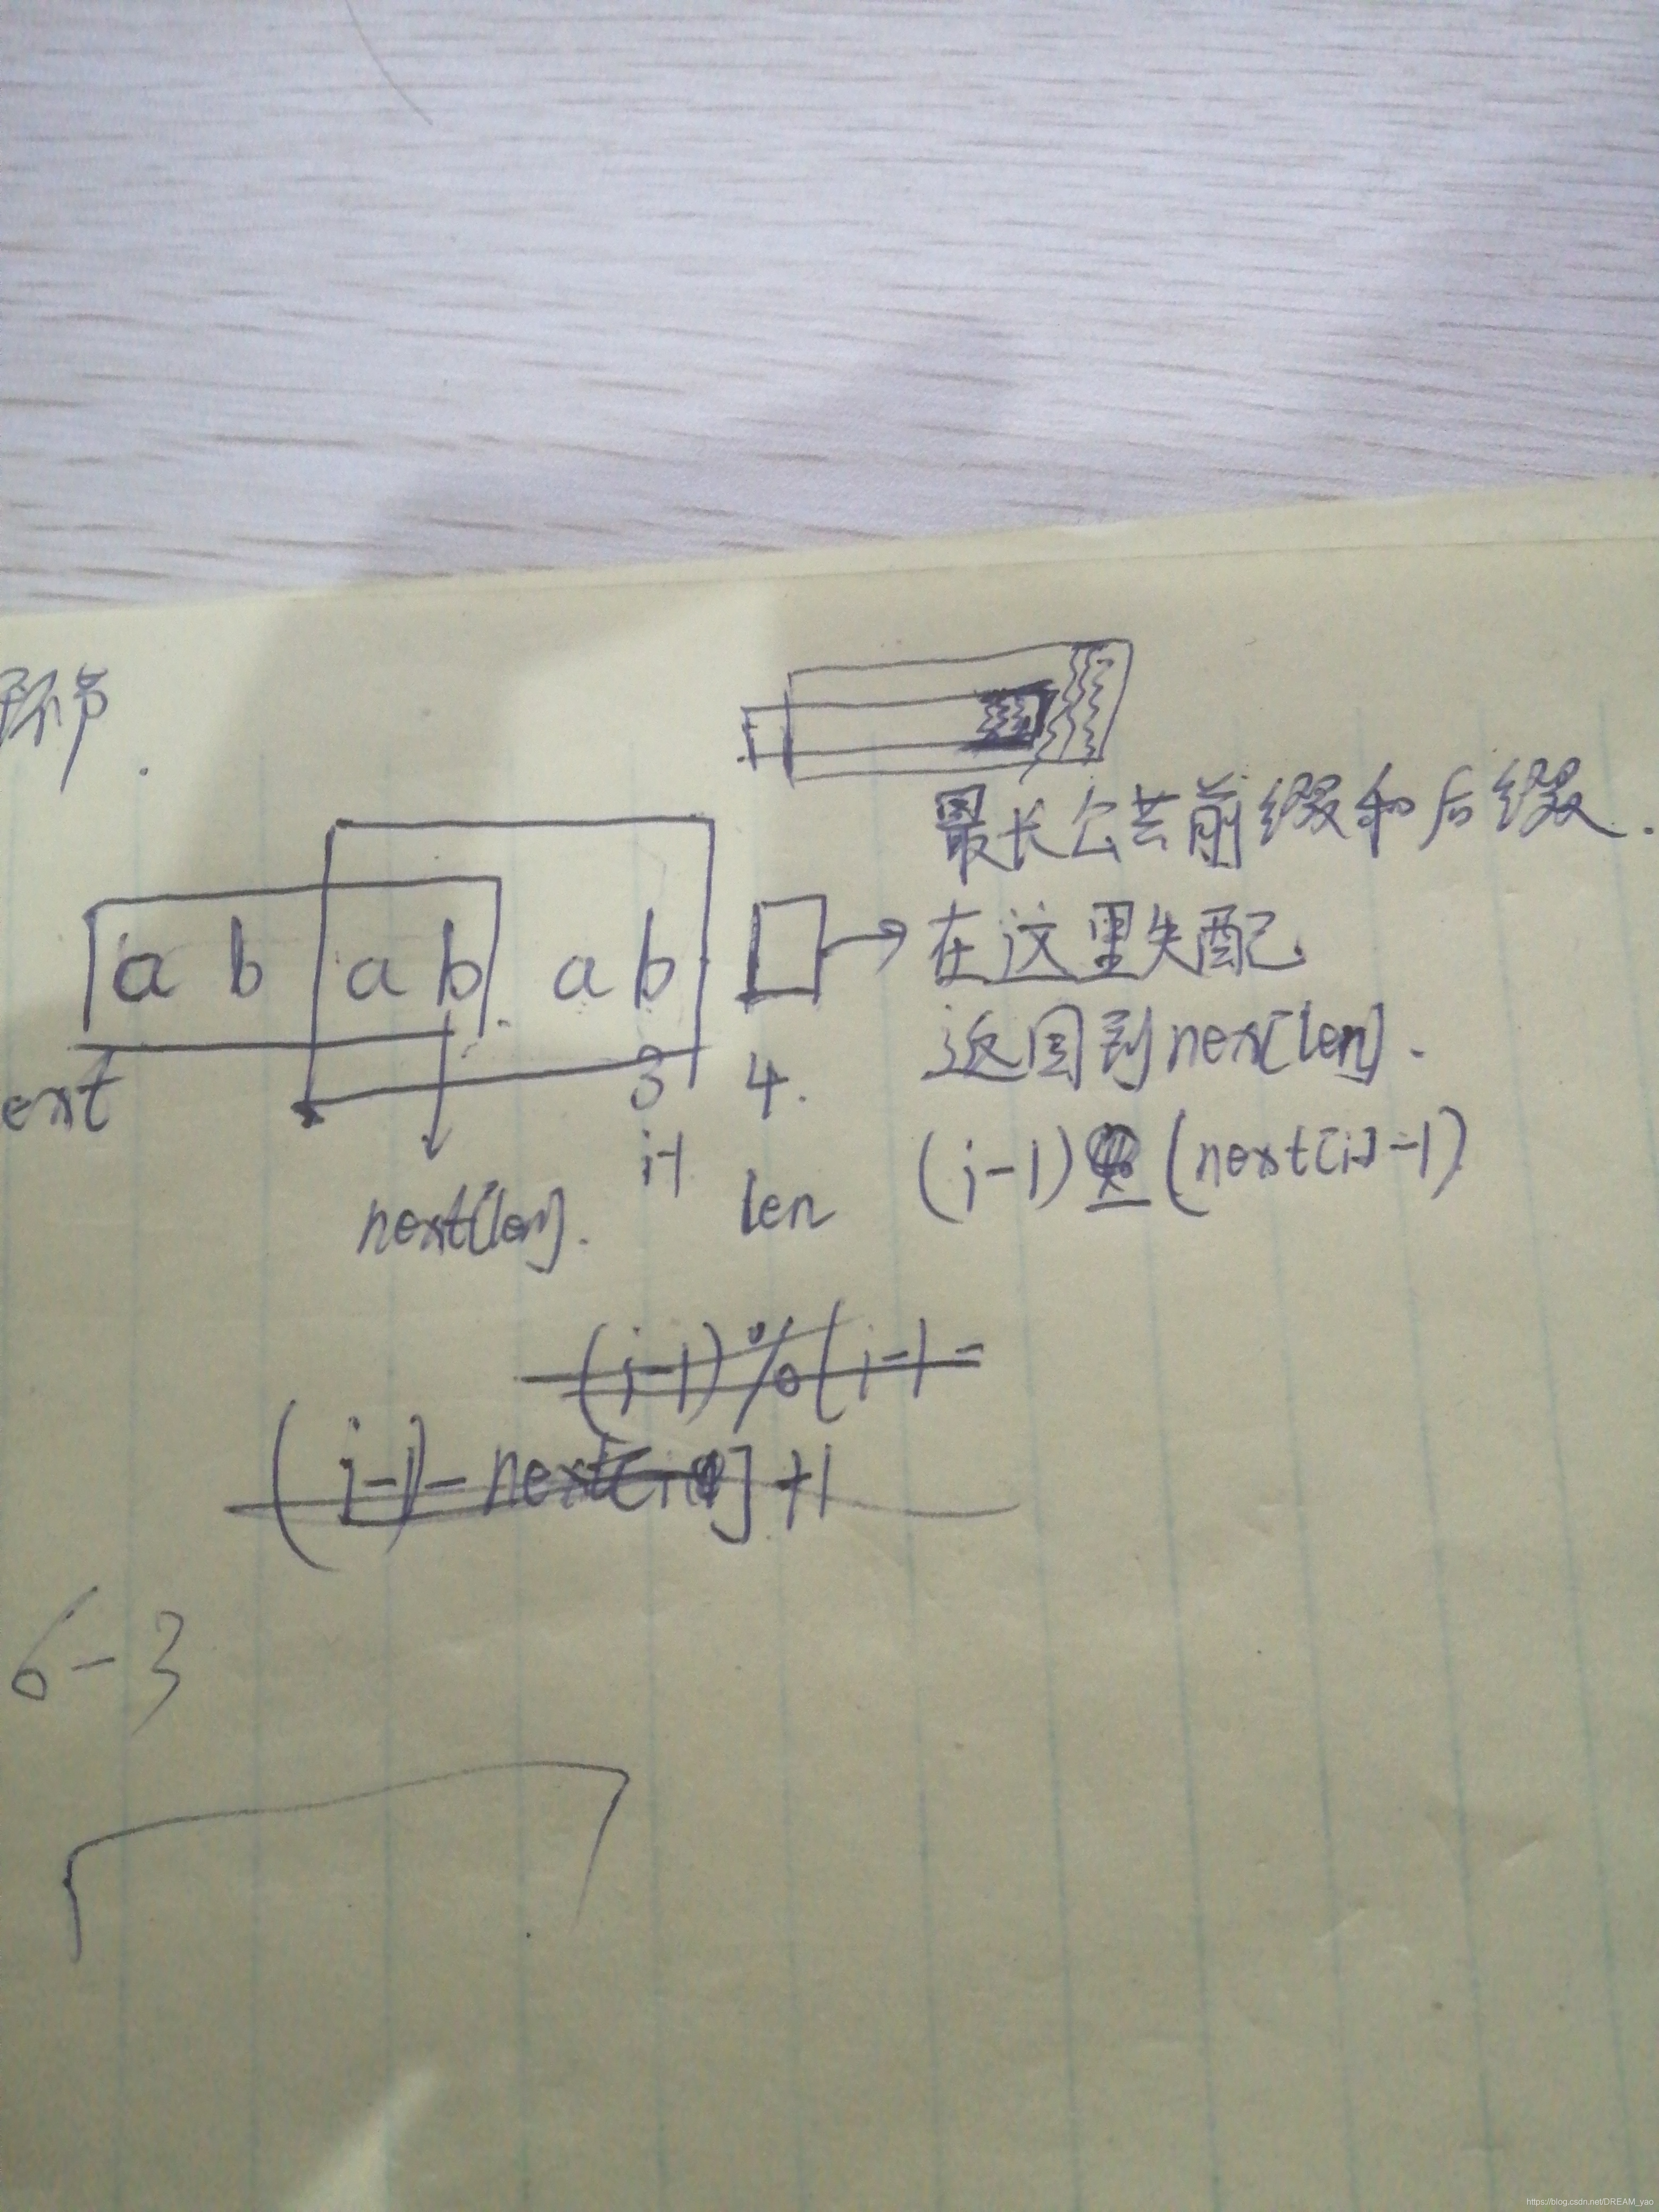 环节.
最长公共前缀和后缀.
a b a b a b
在这里失配
返回到next[len].
ext
3 4.
i-1 len
(i-1) (next[i]-1)
next[len].
(i-1)%(i-1-
(i-1)-next[i]+1
6-3
https://blog.csdn.net/DREAM_yao